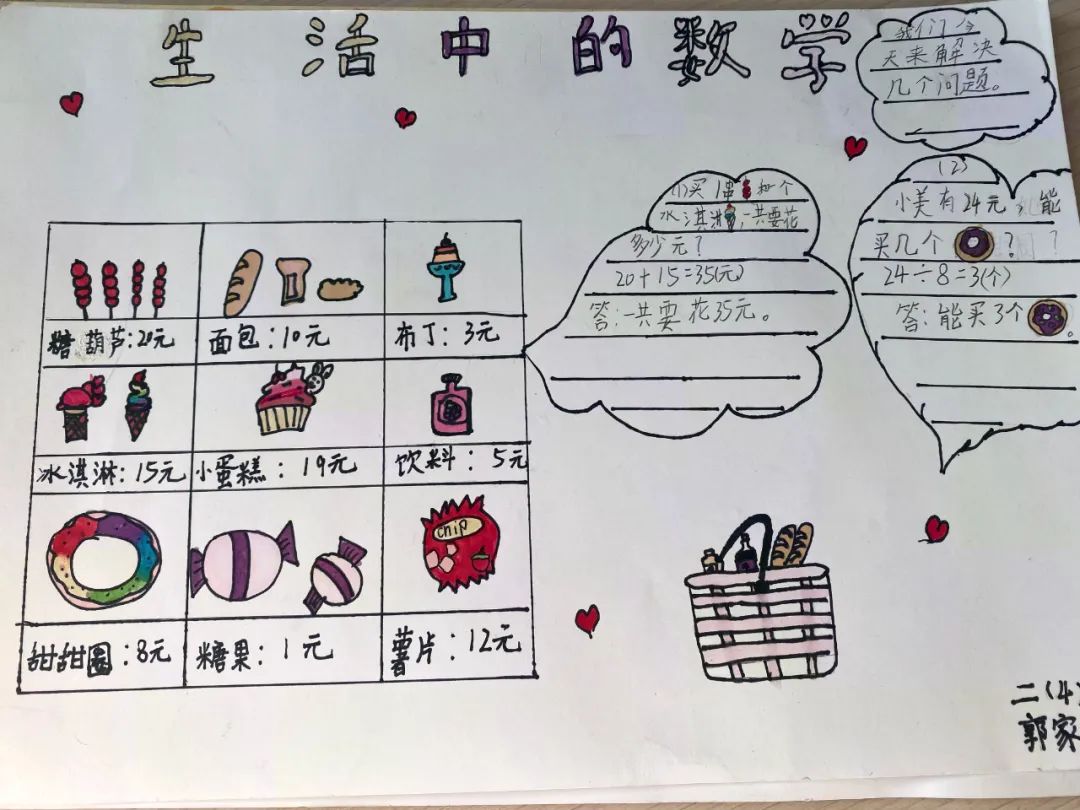 生活中的数学
我们今
天来解决
几个问题。
(1)买1串和个
水淇淋,一共要花
多少元?
20+15=35(元)
答:一共要花35元。
(2)
小美有24元,能
买几个?
24÷8=3(个)
答:能买3个。
糖葫芦:20元
面包:10元
布丁:3元
冰淇淋:15元
小蛋糕:19元
饮料:5元
chip
甜甜圈:8元
糖果:1元
薯片:12元
二(4)
郭家